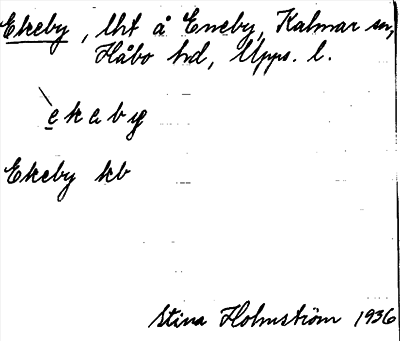 Ekeby, lht å Eneby, Kalmar sn,
Håbo hd, Upps. l.
èkăby
Ekeby kb
Stina Holmström 1936